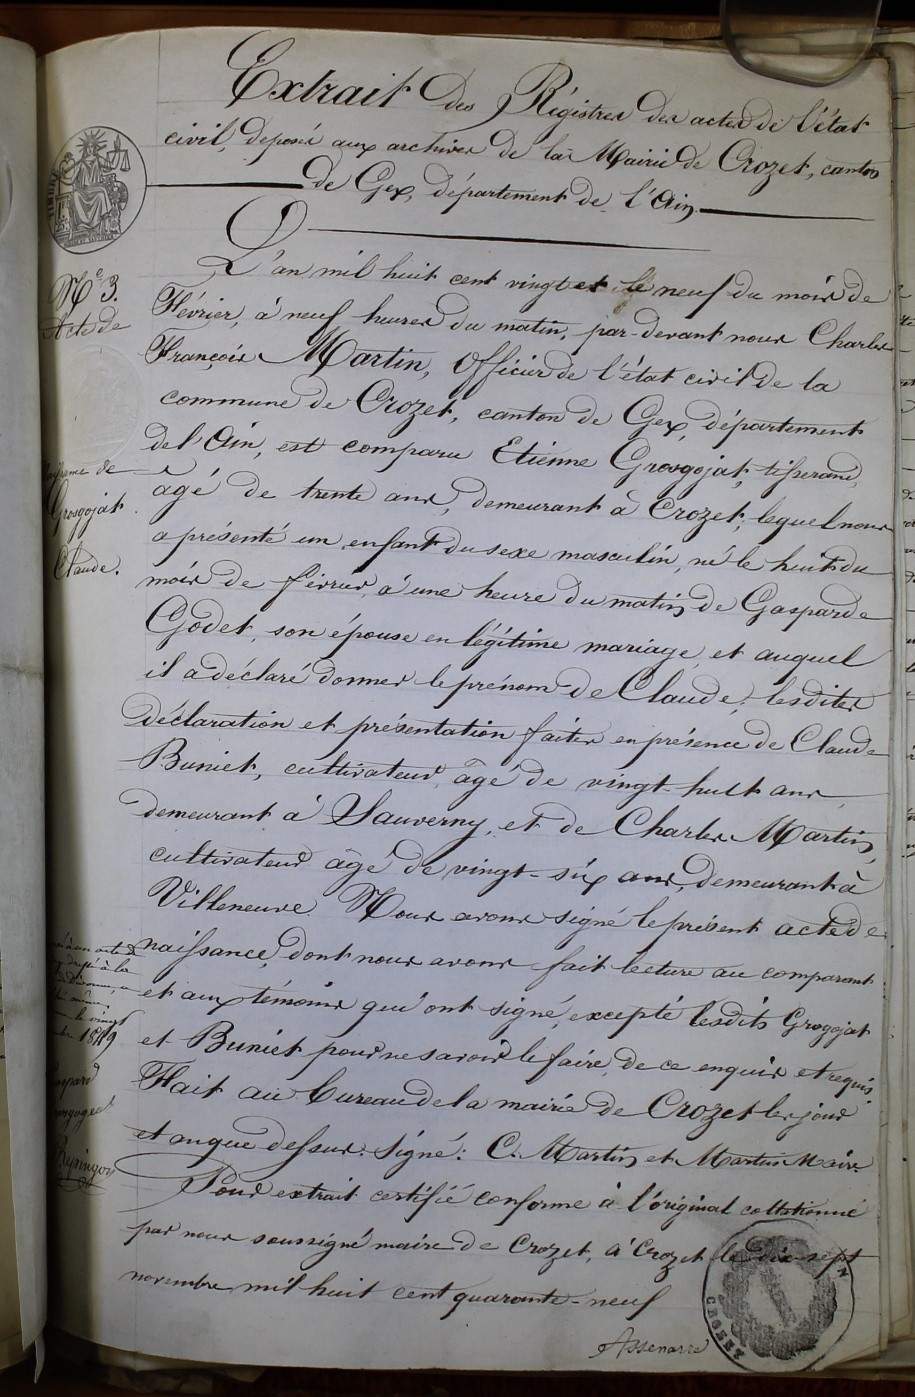 Extrait des Régistres des actes de l'état
civil, déposés aux archives de la Mairie de Crozet, canton
de Gex, département de l'Ain.
L'an mil huit cent vingt et le neuf du mois de
Février, à neuf heures du matin, par-devant nous Charles
François Martin, Officier de l'état civil de la
commune de Crozet, canton de Gex, département
de l'Ain, est comparu Etienne Grosgojat, tisserand,
agé de trente ans, demeurant à Crozet, lequel nous
a présenté un enfant du sexe masculin, né le huit du
mois de février, à une heure du matin, de Gasparde
Godet, son épouse en légitime mariage, et auquel
il a déclaré donner le prénom de Claude, lesdites
déclaration et présentation faites en présence de Claude
Buniet, cultivateur, âgé de vingt-huit ans,
demeurant à Sauverny, et de Charles Martin,
cultivateur âgé de vingt-six ans, demeurant à
Villeneuve. Nous avons signé le présent acte de
naissance, dont nous avons fait lecture au comparant
et aux témoins qui ont signé, excepté lesdits Grogojat
et Buniet pour ne savoir le faire, de ce enquis et requis.
Fait au bureau de la mairie de Crozet les jour
et an que dessus. Signé: C. Martin et Martin Maire
Pour extrait certifié conforme à l'original collationné
par nous soussigné maire de Crozet, à Crozet le dix-sept
novembre mil huit cent quarante-neuf
N° 3.
Acte de
de
Grosgojat
Claude.
le vingt
1849
CROZET